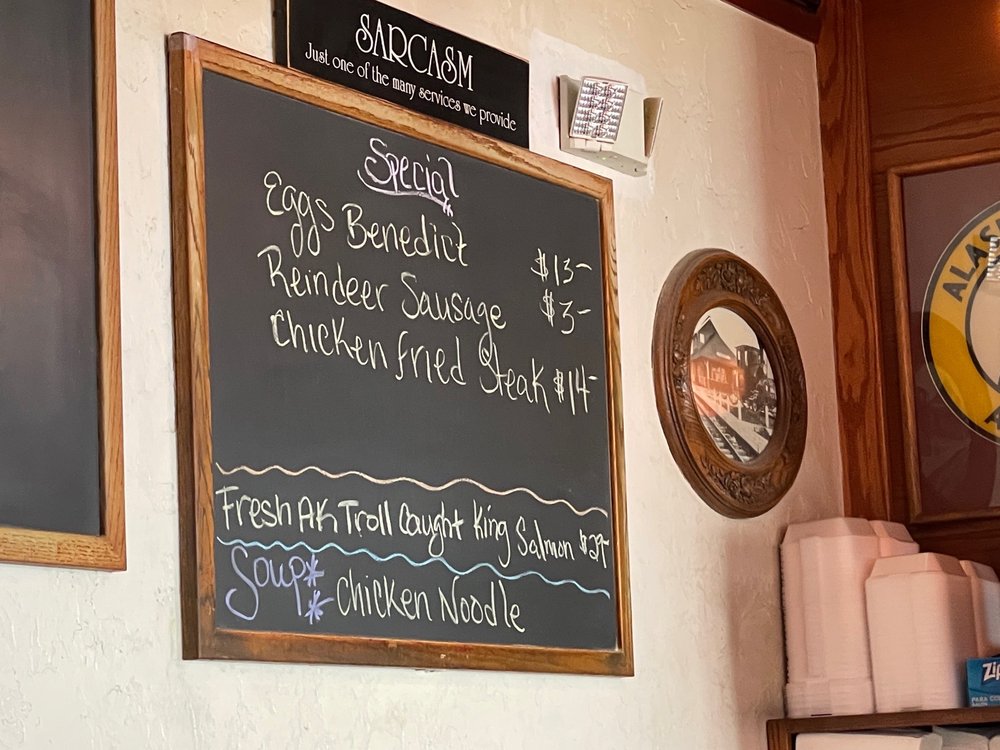 SARCASM
Just one of the many services we provide
Special
Eggs Benedict $13-
Reindeer Sausage $3-
Chicken fried Steak $14-
Fresh AK Troll Caught King Salmon $29-
Soup Chicken Noodle
ALAS
Zip
PARA